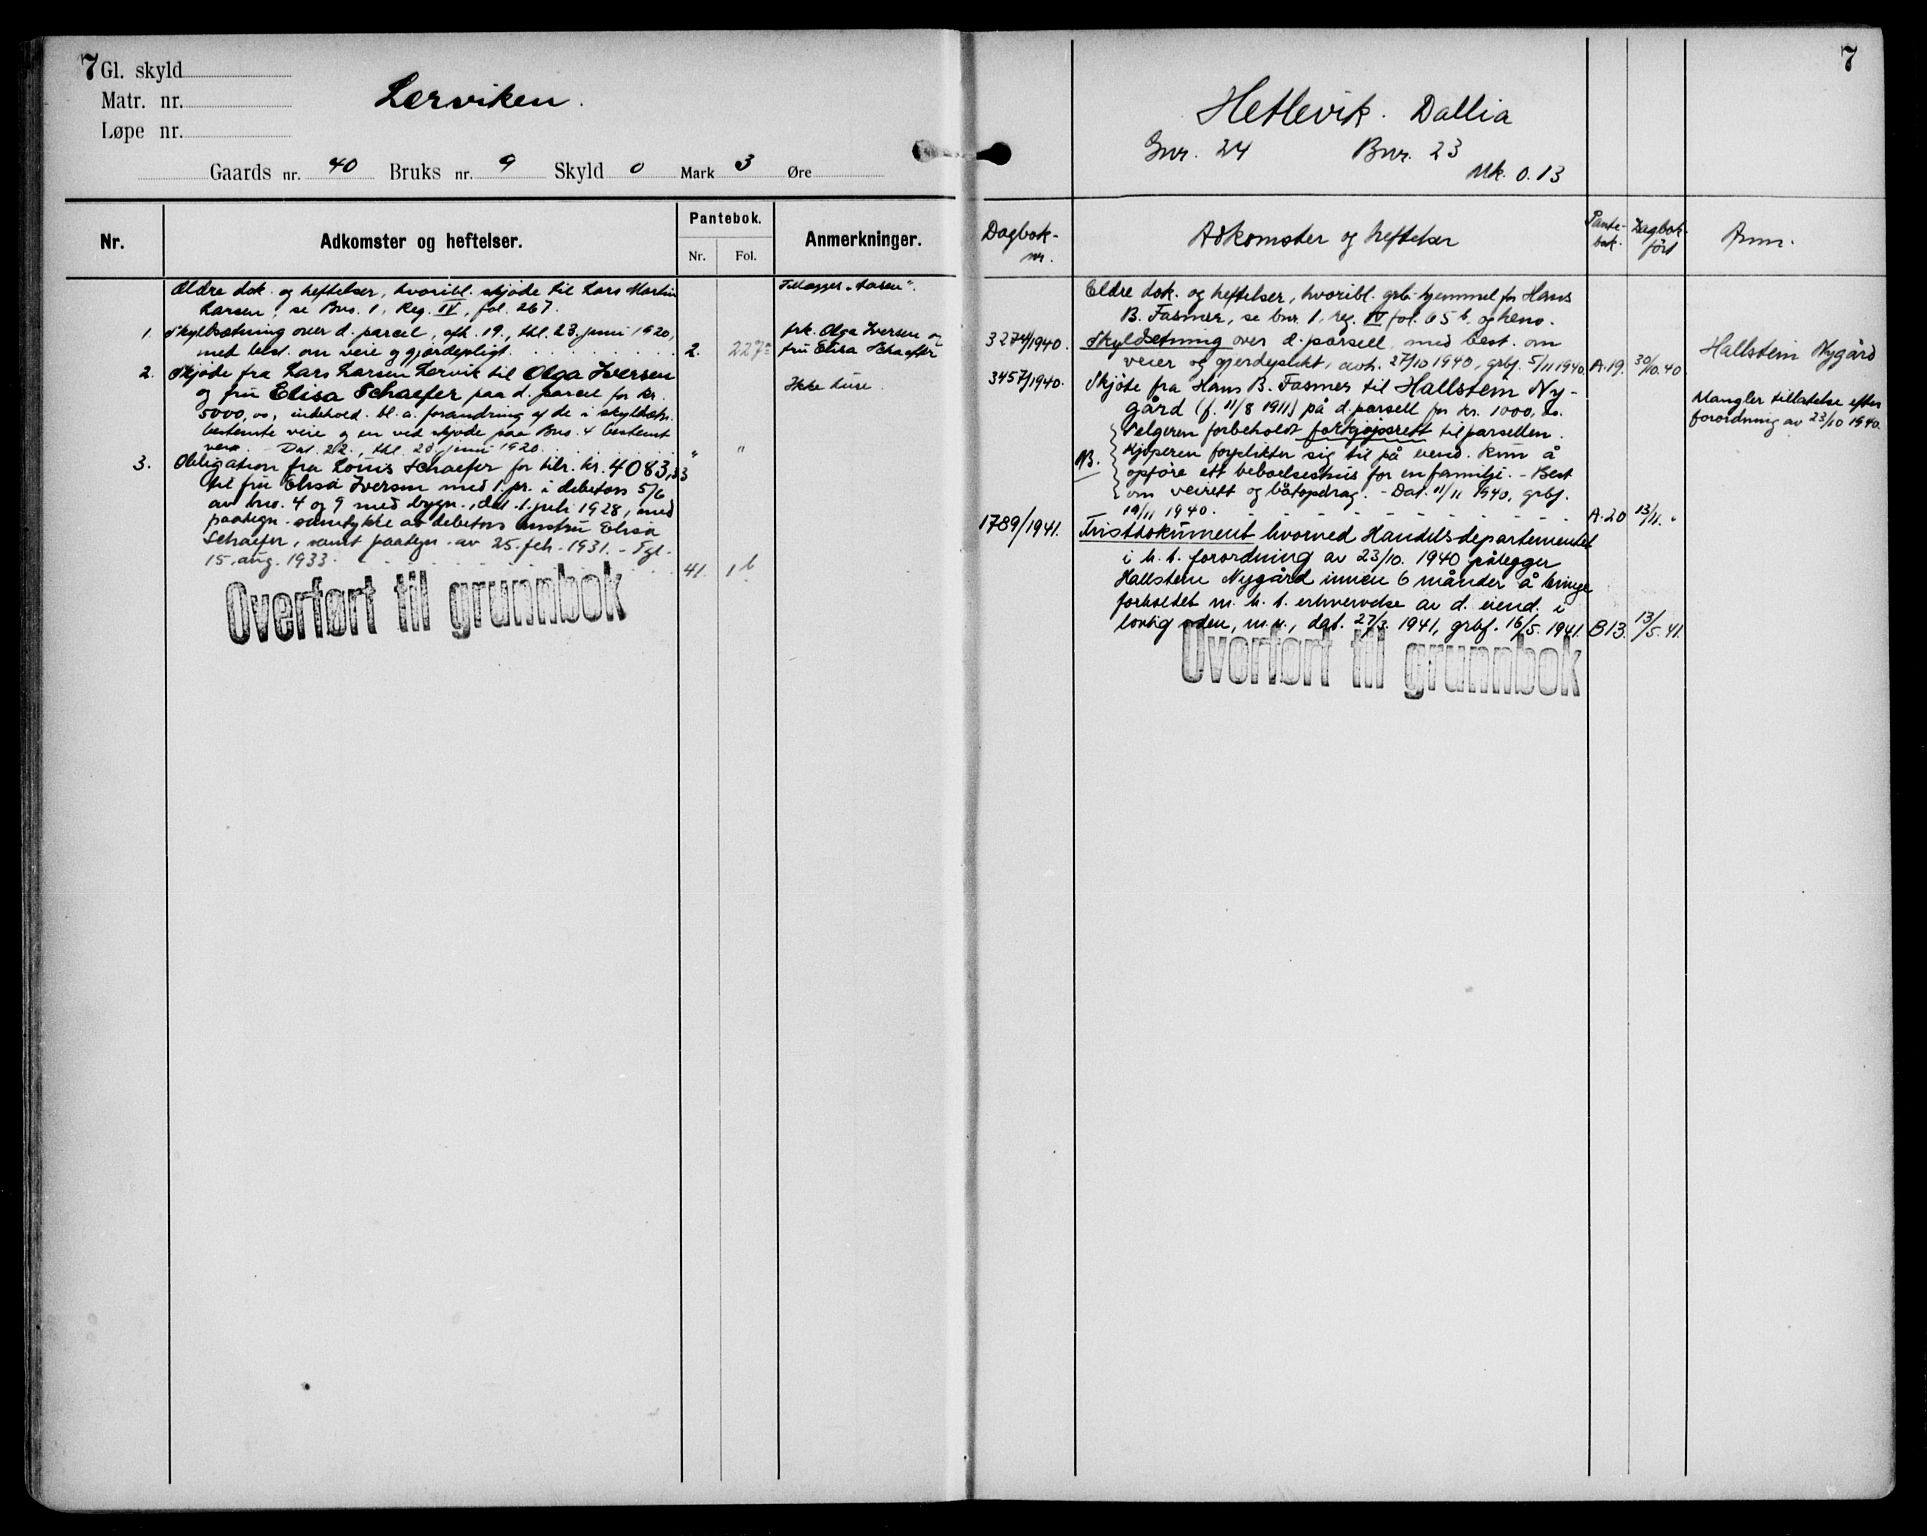 7 Gl. skyld
Matr. nr.
Løpe nr.
Lerviken.
Gaards nr. 40 Bruks nr. 9 Skyld 0 Mark 3 Øre
Nr.
Adkomster og heftelser.
Pantebok.
Nr. Fol.
Anmerkninger.
Ældre dok. og heftelser, hvoribl. skjøde til Lars Martin
Larsen, se Bno. 1, Reg. IV, fol. 267.
Tillægges "Aasen".
1. Skyldsætning over d. parcel, afh. 19., thl. 23. juni 1920,
med best. om veie og gjærdepligt. 2. 227a
frk. Olga Iversen og
fru Elisa Schaefer
2. Skjøde fra Lars Larsen Lervik til Olga Iversen
og fru Elisa Schaefer paa d. parcel for kr.
5000,00, indehold. bl. a. forandring af de i skyldsætn.
bestemte veie og en ved skjøde paa Bno. 4 bestemt
vei. Dat. 22., thl. 23. juni 1920. " "
Ikke huse.
3. Obligation fra Louis Schaefer for tilr. kr. 4083,33
til fru Elisa Iversen med 1. pr. i debitors 5/6
av bno. 4 og 9 med bygn., dat. 1. juli 1928, med
paategn. samtykke av debitors hustru Elisa
Schaefer, samt paategn. av 25. feb. 1931. - Tgl.
15. aug. 1933. 41. 1b
Overført til grunnbok
7
Hetlevik. Dallia
Gnr. 24 Bnr. 23
Mk. 0.13
Dagbok-
nr.
Adkomster og heftelser
Pante-
bok.
Dagbok-
ført
Anm.
Eldre dok. og heftelser, hvoribl. grb. hjemmel for Hans
B. Fasmer, se bnr. 1, reg. IV fol. 65 b. og henv.
3274/1940. Skyldsetning over d. parsell, med best. om
veier og gjerdeplikt, avh. 27/10 1940, grbf. 5/11 1940. A.19. 30/10.40
Hallstein Nygård
3457/1940. Skjøte fra Hans B. Fasmer til Hallstein Ny-
gård (f. 11/8 1911) på d. parsell for kr. 1000,00.
Mangler tillatelse efter
forordning av 23/10 1940.
Selgeren forbeholdt forkjøpsrett til parsellen.
NB. Kjøperen forplikter sig til på eiend. kun å
opføre ett beboelseshus for en familje. - Best.
om veirett og båtopdrag. - Dat. 11/11 1940, grbf.
19/11 1940. A.20 13/11. "
1789/1941. Fristdokument hvorved Handelsdepartementet
i h. t. forordning av 23/10. 1940 pålegger
Hallstein Nygård innen 6 måneder å bringe
forholdet m. h. t. erhvervelse av d. eiend. i
lovlig orden, m. v., dat. 27/3. 1941, grbf. 16/5. 1941. B13. 13/5.41.
Overført til grunnbok